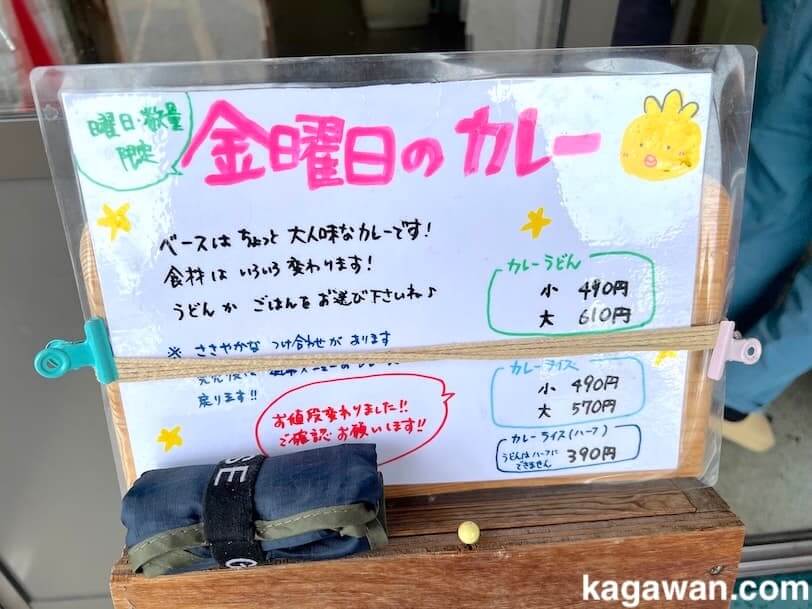 曜日・数量
限定
金曜日のカレー
ベースは ちょっと 大人味なカレーです!
食材は いろいろ 変わります!
うどん か ごはんを お選び下さいね♪
※ ささやかな つけ合わせが あります
戻ります!!
お値段変わりました!!
ご確認 お願いします!!
カレーうどん
小 490円
大 610円
カレーライス
小 490円
大 570円
カレーライス(ハーフ)
うどんはハーフに
できません
390円
SE
kagawan.com